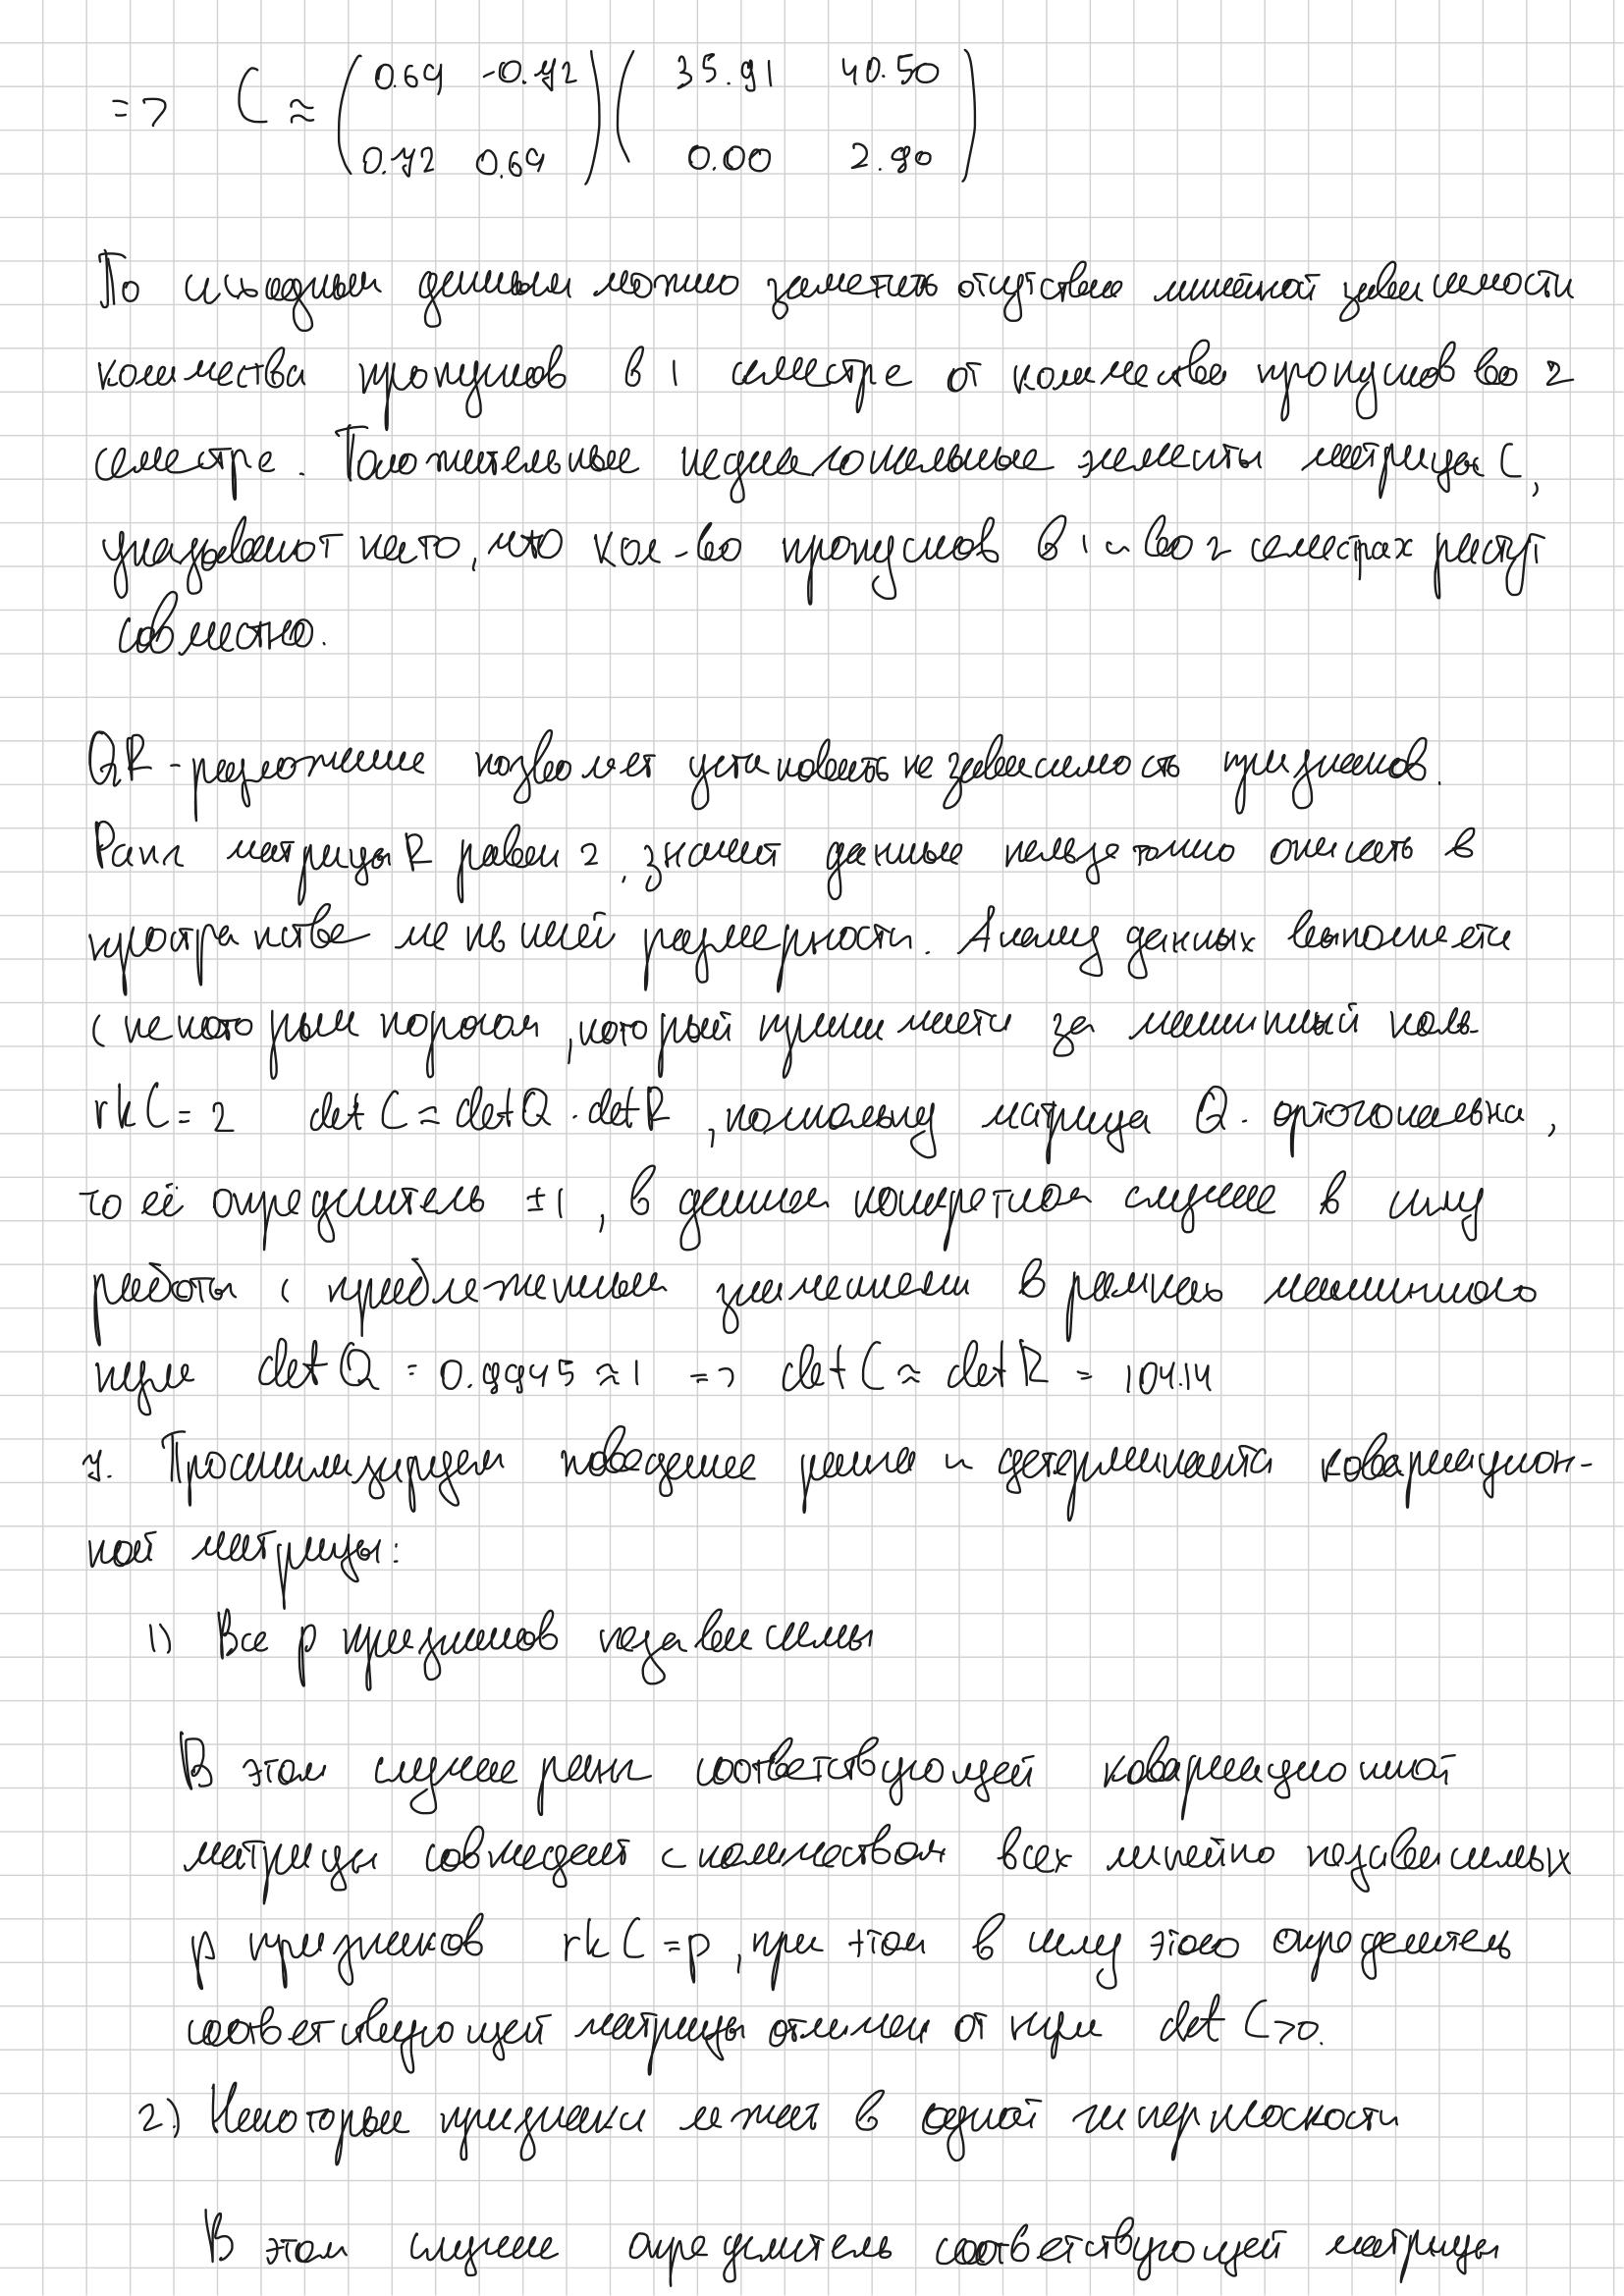 => C ≈ (0.69 -0.72; 0.72 0.69) (35.91 40.50; 0.00 2.90)
По исходным данным можно заметить отсутствие линейной зависимости
количества пропусков в 1 семестре от количества пропусков во 2
семестре. Положительные недиагональные элементы матрицы C,
указывают на то, что кол-во пропусков в 1 и во 2 семестрах растут
совместно.
QR-разложение позволяет установить независимость признаков.
Ранг матрицы R равен 2, значит данные нельзя точно описать в
пространстве меньшей размерности. Анализ данных выполняется
с некоторым порогом, который принимается за машинный ноль
rk C = 2 det C = det Q · det R, поскольку матрица Q - ортогональна,
то её определитель ±1, в данном конкретном случае в силу
работы с приближенными значениями в рамках машинного
нуля det Q = 0.9945 ≈ 1 => det C ≈ det R = 104.14
7. Проанализируем поведение ранга и детерминанта ковариацион-
ной матрицы:
1) Все p признаков независимы
В этом случае ранг соответствующей ковариационной
матрицы совпадает с количеством всех линейно независимых
p признаков rk C = p, при этом в силу этого определитель
соответствующей матрицы отличен от нуля det C > 0.
2) Некоторые признаки лежат в одной гиперплоскости
В этом случае определитель соответствующей матрицы